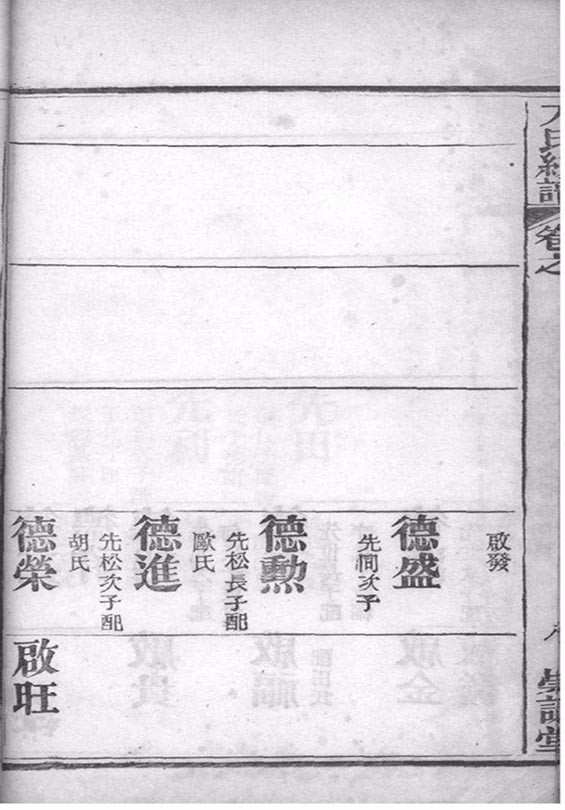 氏 譜
卷之
堂
啟發
德盛
先 次子
德勳
先松長子配
歐氏
德進
先松次子配
胡氏
德榮
啟旺